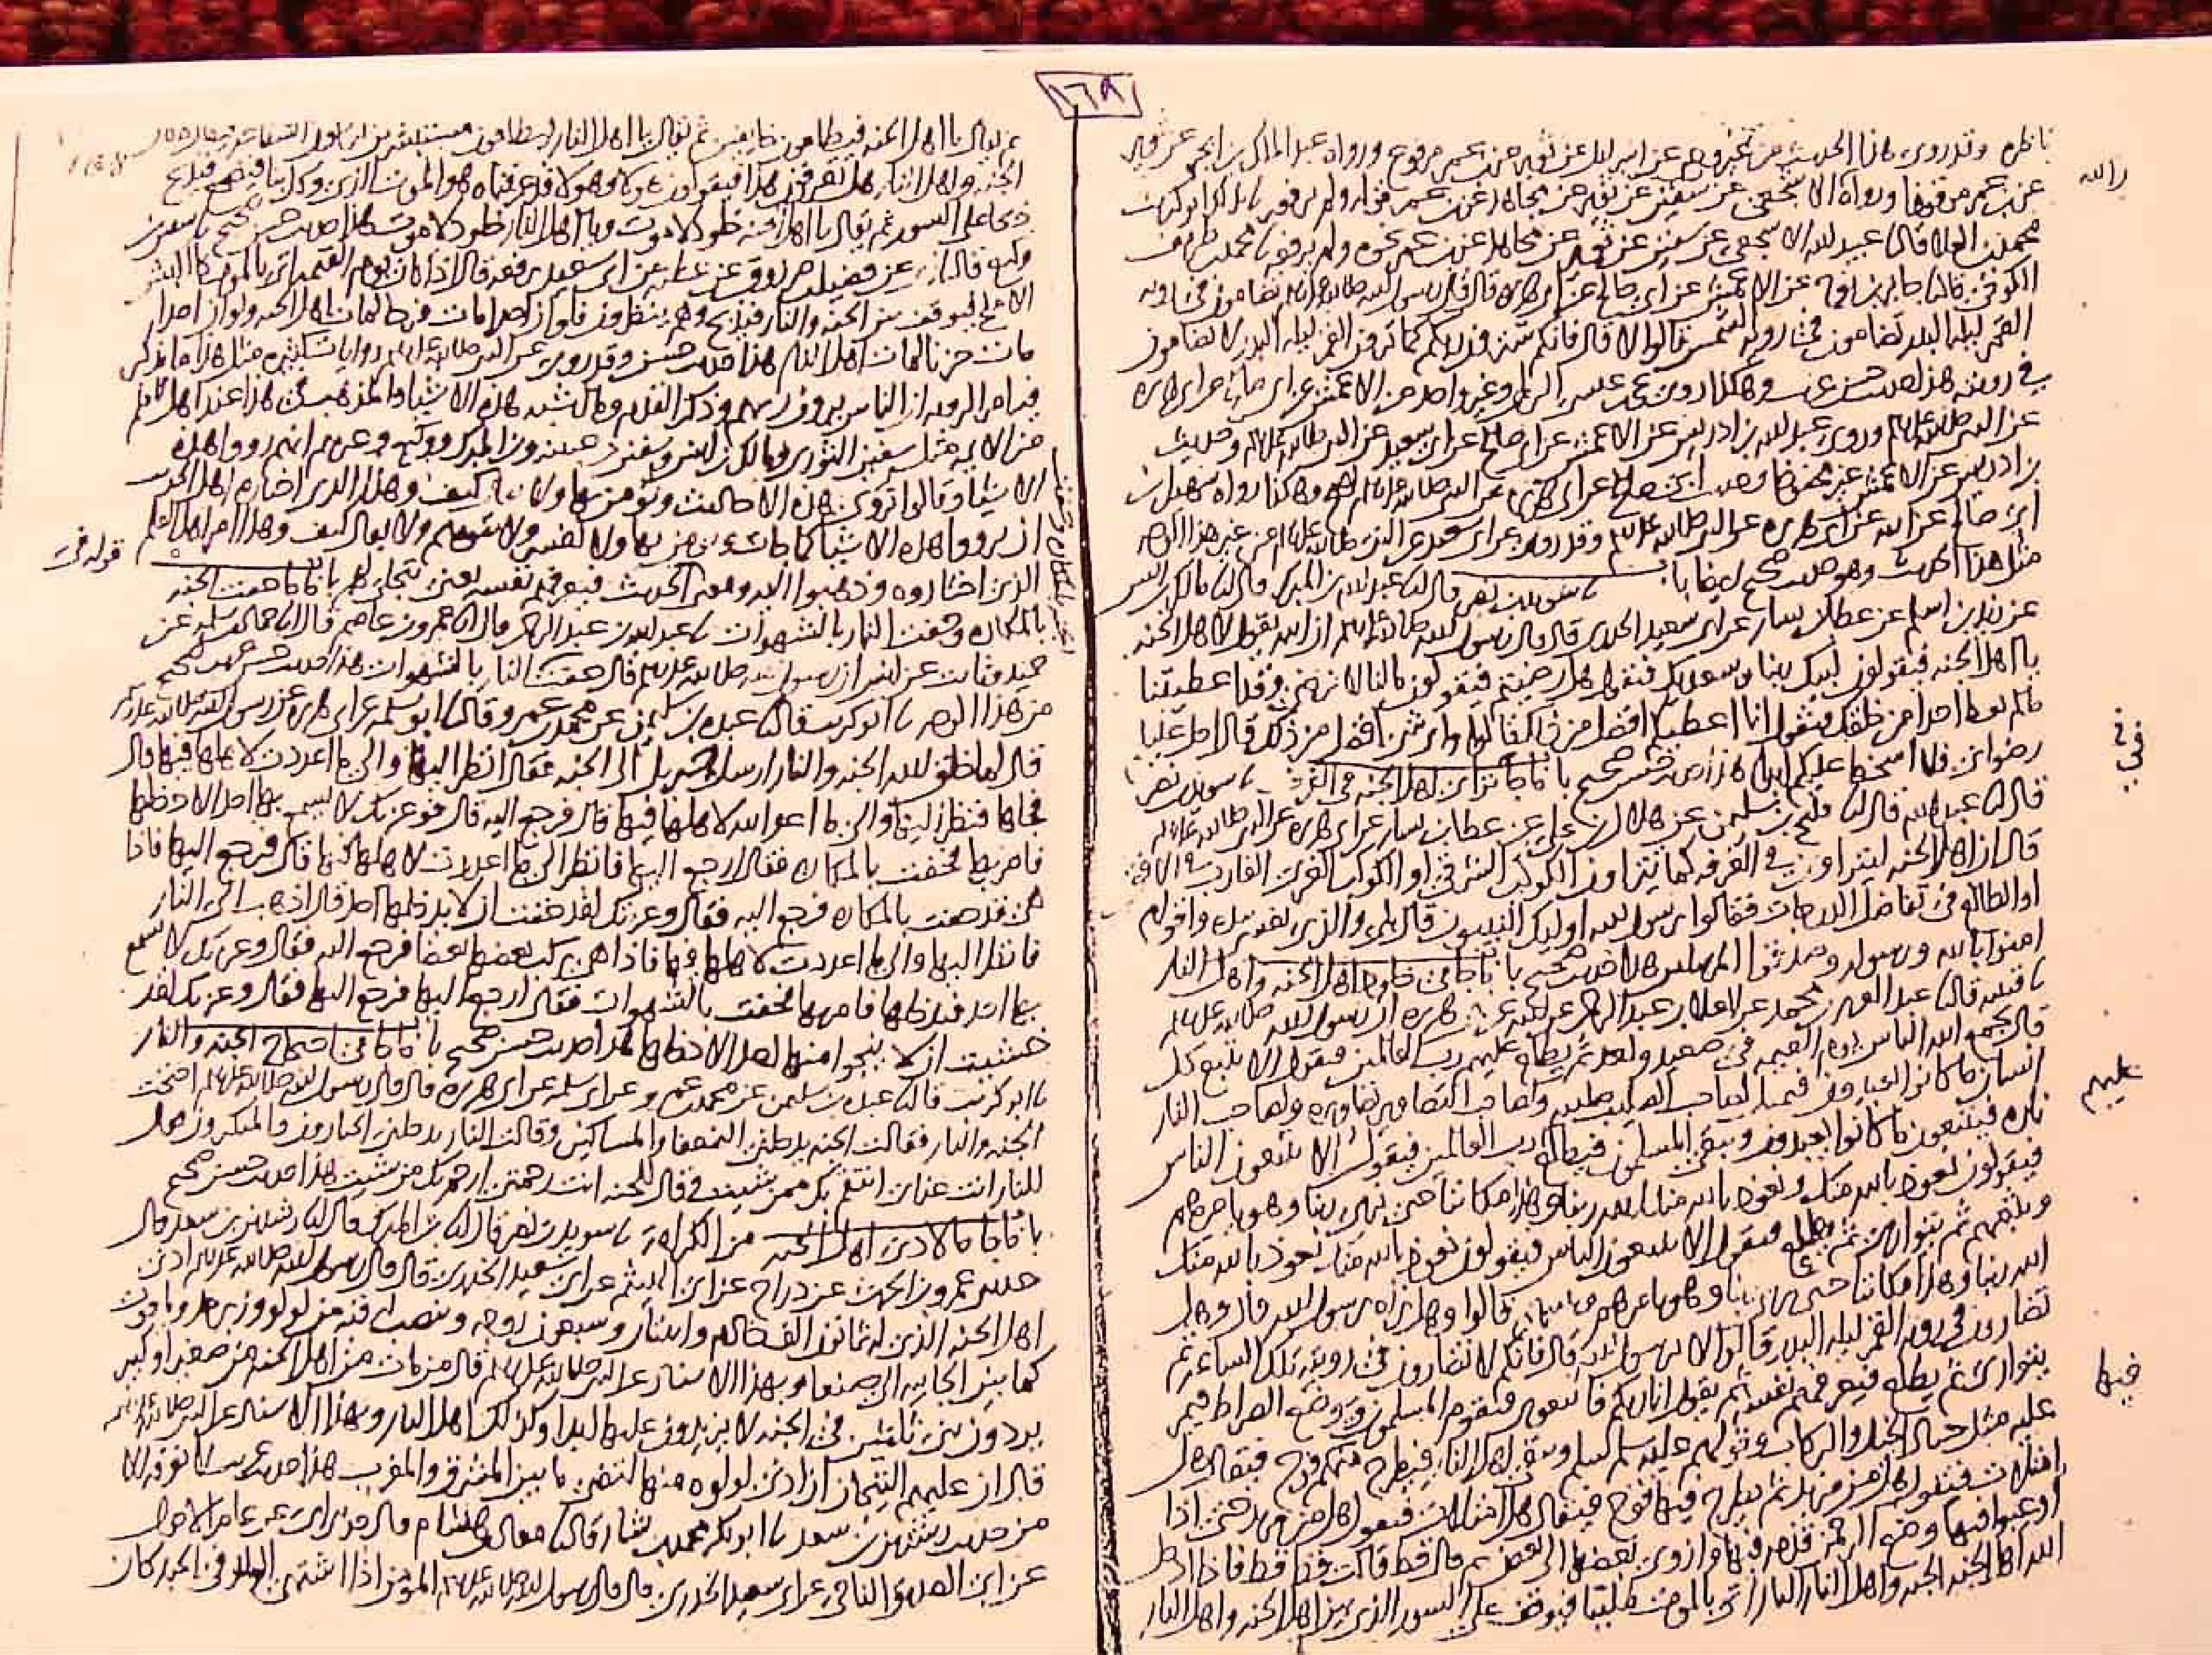 ١٦٨
ناظرة وقد روى هذا الحديث من غير وجه عن اسرائيل عن ثوير عن ابن عمر مرفوع ورواه عبد الملك بن ابجر عن ثوير
عن ابن عمر موقوفا ورواه الاشجعي عن سفين عن ثوير عن مجاهد عن ابن عمر قوله ولم يرفعه نا بذلك ابو كريب
محمد بن العلا قال نا عبيد الله الاشجعي عن سفين عن ثوير عن مجاهد عن ابن عمر نحوه ولم يرفعه نا محمد بن طريف
الكوفي قال نا جابر بن نوح عن الاعمش عن ابي صالح عن ابي هريرة قال قال رسول الله صلى الله عليه وسلم تضامون في رؤية
القمر ليلة البدر تضامون في رؤية الشمس قالوا لا قال فانكم سترون ربكم كما ترون القمر ليلة البدر لا تضامون
في رويته هذا حديث حسن غريب وهكذا روى يحيى بن عيسى الرملي وغير واحد عن الاعمش عن ابي صالح عن ابي هريرة
عن النبي صلى الله عليه وسلم وروى عبد الله بن ادريس عن الاعمش عن ابي صالح عن ابي سعيد عن النبي صلى الله عليه وسلم وحديث
بن ادريس عن الاعمش غير محفوظ وحديث ابي صالح عن ابي هريرة عن النبي صلى الله عليه وسلم اصح وهكذا رواه سهيل بن
ابي صالح عن ابيه عن ابي هريرة عن النبي صلى الله عليه وسلم وقد روى عن ابي سعيد عن النبي صلى الله عليه وسلم من غير هذا الوجه
مثل هذا الحديث وهو حديث صحيح ايضا باب نا سويد بن نصر قال نا عبد الله بن المبارك قال نا مالك بن انس
عن زيد بن اسلم عن عطا بن يسار عن ابي سعيد الخدري قال قال رسول الله صلى الله عليه وسلم ان الله يقول لاهل الجنة
يا اهل الجنة فيقولون لبيك ربنا وسعديك فيقول هل رضيتم فيقولون ما لنا لا نرضى وقد اعطيتنا
ما لم تعط احدا من خلقك فيقول انا اعطيكم افضل من ذلك قالوا واي شي افضل من ذلك قال احل عليكم
رضواني فلا اسخط عليكم ابدا هذا حديث حسن صحيح باب ما جا في ترائي اهل الجنة في الغرف نا سويد بن نصر
قال نا عبد الله قال نا فليح بن سليمن عن هلال بن علي عن عطا بن يسار عن ابي هريرة عن النبي صلى الله عليه وسلم
قال ان اهل الجنة ليتراون في الغرفة كما يتراون الكوكب الشرقي او الكوكب الغربي الغارب في الافق
او الطالع في تفاضل الدرجات فقالوا يا رسول الله اوليك النبيون قال بلى والذي نفسي بيده واقوام
امنوا بالله ورسوله وصدقوا المرسلين هذا حديث صحيح باب ما جا في خلود اهل الجنة واهل النار
نا قتيبة قال نا عبد العزيز بن محمد عن العلا بن عبد الرحمن عن ابيه عن ابي هريرة ان رسول الله صلى الله عليه وسلم
قال يجمع الله الناس يوم القيمة في صعيد واحد ثم يطلع عليهم رب العالمين فيقول الا يتبع كل
انسان ما كانوا يعبدون فيمثل لصاحب الصليب صليبه ولصاحب التصاوير تصاويره ولصاحب النار
ناره فيتبعون ما كانوا يعبدون ويبقى المسلمون فيطلع رب العالمين فيقول الا تتبعون الناس
فيقولون نعوذ بالله منك ونعوذ بالله منك الله ربنا وهذا مكاننا حتى نرى ربنا وهو يامرهم
ويثبتهم ثم يتوارى ثم يطلع فيقول الا تتبعون الناس فيقولون نعوذ بالله منك نعوذ بالله منك
الله ربنا وهذا مكاننا حتى نرى ربنا وهو يامرهم ويثبتهم قالوا وهل نراه يرسول الله قال وهل
تضارون في روية القمر ليلة البدر قالوا لا يرسول الله قال فانكم لا تضارون في رويته تلك الساعة ثم
يتوارى ثم يطلع فيعرفهم نفسه ثم يقول انا ربكم فاتبعوني فيقوم المسلمون ويوضع الصراط فيمر
عليه مثل جياد الخيل والركاب وقولهم عليه سلم سلم ويبقى اهل النار فيطرح منهم فوج فيقال هل
امتلات فتقول هل من مزيد ثم يطرح فيها فوج فيقال هل امتلات فتقول هل من مزيد حتى اذا
اوعبوا فيها وضع الرحمن قدمه فيها وازوى بعضها الى بعض ثم قال قط قالت قط قط فاذا ادخل
الله اهل الجنة الجنة واهل النار النار اتى بالموت ملببا فيوقف على السور الذي بين اهل الجنة واهل النار
والله
في
عليهم
فيها
ثم يقال يا اهل الجنة فيطلعون خايفين ثم يقال يا اهل النار فيطلعون مستبشرين يرجون الشفاعة فيقال لاهل
الجنة ولاهل النار هل تعرفون هذا فيقولون هولا وهولا قد عرفناه هو الموت الذي وكل بنا فيضجع فيذبح
ذبحا على السور ثم يقال يا اهل الجنة خلود لا موت ويا اهل النار خلود لا موت هذا حديث حسن صحيح نا سفين بن
وكيع قال نا ابي عن فضيل بن مرزوق عن عطية عن ابي سعيد يرفعه قال اذا كان يوم القيمة اتي بالموت كالكبش
الاملح فيوقف بين الجنة والنار فيذبح وهم ينظرون فلو ان احدا مات فرحا لمات اهل الجنة ولو ان احدا
مات حزنا لمات اهل النار هذا حديث حسن وقد روى عن النبي صلى الله عليه وسلم روايات كثيرة مثل هذا ما يذكر
فيه امر الروية ان الناس يرون ربهم وذكر القدم وما اشبه هذه الاشيا والمذهب في هذا عند اهل العلم
من الايمة مثل سفين الثوري ومالك بن انس وسفين بن عيينة وبن المبرك ووكيع وغيرهم انهم رووا هذه
الاشيا وقالوا تروى هذه الاحاديث ونومن بها ولا يقال كيف وهذا الذي اختاره اهل الحديث
ان يرووا هذه الاشيا كما جات ويومن بها ولا تفسر ولا تتوهم ولا يقال كيف وهذا امر اهل العلم
الذي اختاروه وذهبوا اليه ومعنى الحديث فيعرفهم نفسه يعني يتجلى لهم باب ما جا حفت الجنة
بالمكاره وحفت النار بالشهوات نا عبد الله بن عبد الرحمن قال انا عمرو بن عاصم قال انا حماد بن سلمة عن
حميد وثابت عن انس ان رسول الله صلى الله عليه وسلم قال حفت النار بالشهوات هذا حديث حسن غريب صحيح
من هذا الوجه نا ابو كريب قال نا عبدة بن سليمن عن محمد بن عمرو قال نا ابو سلمة عن ابي هريرة عن رسول الله صلى الله عليه وسلم
قال لما خلق الله الجنة والنار ارسل جبريل الى الجنة فقال انظر اليها والى ما اعددت لاهلها فيها قال
فجاها فنظر اليها والى ما اعد الله لاهلها فيها قال فرجع اليه قال فوعزتك لا يسمع بها احد الا دخلها
فامر بها فحفت بالمكاره فقال ارجع اليها فانظر الى ما اعددت لاهلها فيها قال فرجع اليها فاذا
هي قد حفت بالمكاره فرجع اليه فقال وعزتك لقد خفت ان لا يدخلها احد قال اذهب الى النار
فانظر اليها والى ما اعددت لاهلها فيها فاذا هي يركب بعضها بعضا فرجع اليه فقال وعزتك لا يسمع
بها احد فيدخلها فامر بها فحفت بالشهوات فقال ارجع اليها فرجع اليها فقال وعزتك لقد
خشيت ان لا ينجوا منها احد الا دخلها هذا حديث حسن صحيح باب ما جا في احتجاج الجنة والنار
نا ابو كريب قال نا عبدة بن سليمن عن محمد بن عمرو عن ابي سلمة عن ابي هريرة قال قال رسول الله صلى الله عليه وسلم احتجت
الجنة والنار فقالت الجنة يدخلني الضعفا والمساكين وقالت النار يدخلني الجبارون والمتكبرون فقال
للنار انت عذابي انتقم بك ممن شيت وقال للجنة انت رحمتي ارحم بك من شيت هذا حديث حسن صحيح
باب ما جا ما لادنى اهل الجنة من الكرامة نا سويد بن نصر قال نا بن المبرك قال نا رشدين بن سعد قال
حدثني عمرو بن الحرث عن دراج عن ابي الهيثم عن ابي سعيد الخدري قال قال رسول الله صلى الله عليه وسلم ادنى
اهل الجنة الذي له ثمانون الف خادم واثنان وسبعون زوجة وتنصب له قبة من لولو وزبرجد وياقوت
كما بين الجابية الى صنعا وبهذا الاسناد عن النبي صلى الله عليه وسلم قال من مات من اهل الجنة من صغير او كبير
يردون بني ثلثين في الجنة لا يزيدون عليها ابدا وكذلك اهل النار وبهذا الاسناد عن النبي صلى الله عليه وسلم
قال ان عليهم التيجان ان ادنى لولوة منها لتضي ما بين المشرق والمغرب هذا حديث غريب لا نعرفه الا
من حديث رشدين بن سعد نا ابو بكر محمد بن بشار قال نا معاذ بن هشام قال حدثني ابي عن عامر الاحول
عن ابي الصديق الناجي عن ابي سعيد الخدري قال قال رسول الله صلى الله عليه وسلم المومن اذا اشتهى الولد في الجنة كان
قوله في